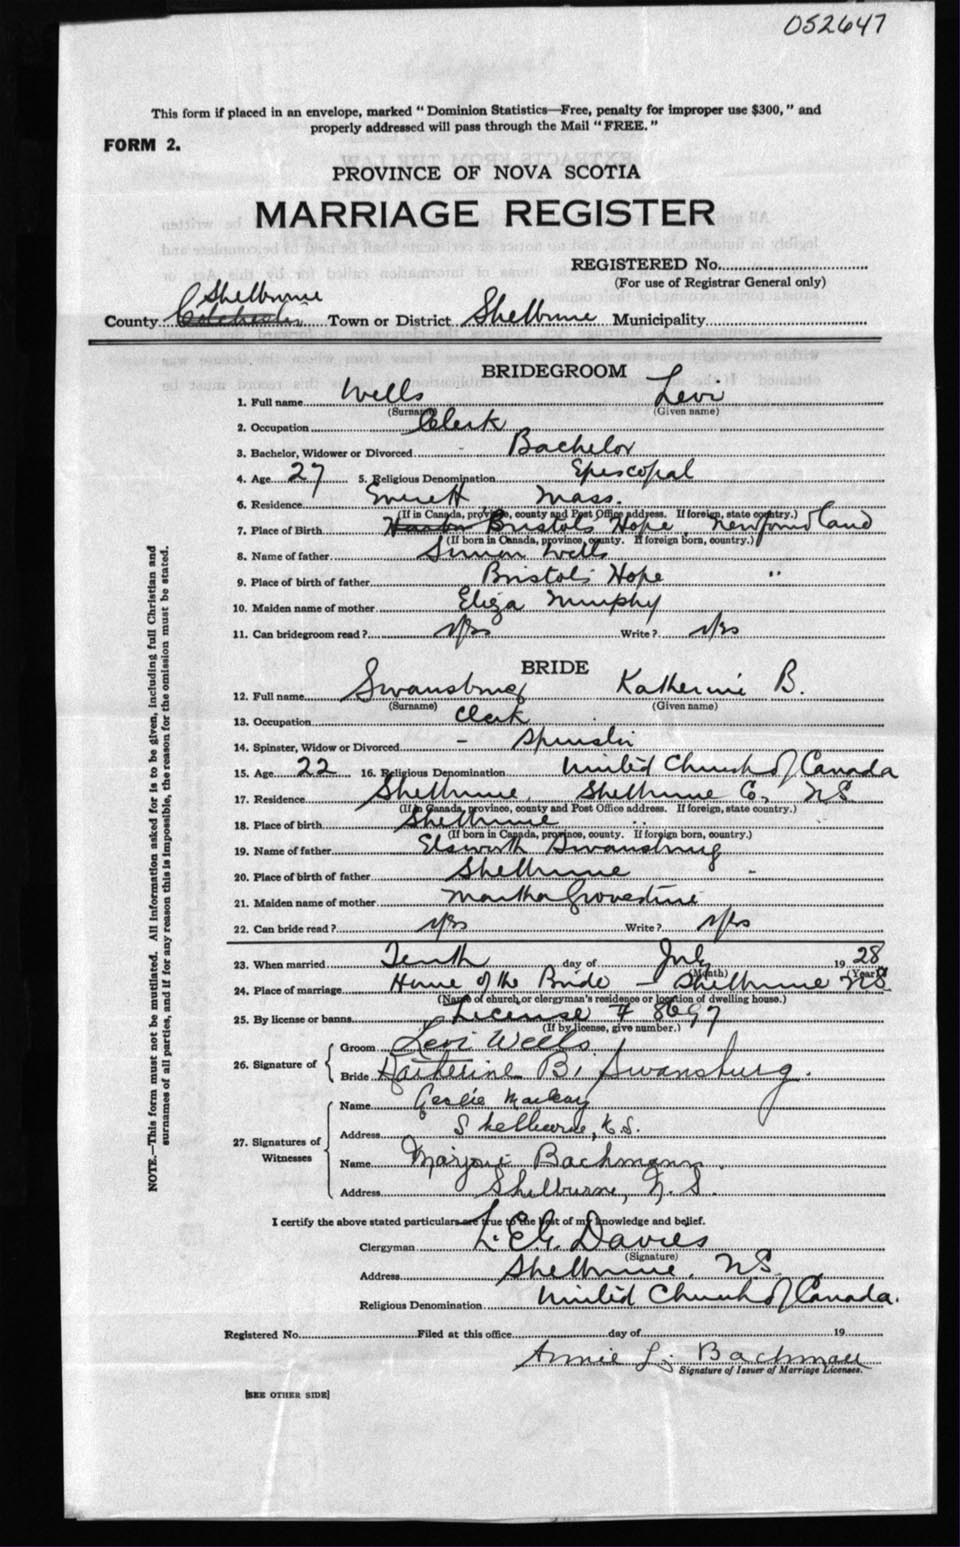 052647
This form if placed in an envelope, marked "Dominion Statistics—Free, penalty for improper use $300," and
properly addressed will pass through the Mail "FREE."
FORM 2.
PROVINCE OF NOVA SCOTIA
MARRIAGE REGISTER
REGISTERED No.
(For use of Registrar General only)
Shelburne
County Colchester Town or District Shelburne Municipality
BRIDEGROOM
1. Full name Wells Levi
(Surname) (Given name)
2. Occupation Clerk
3. Bachelor, Widower or Divorced - Bachelor
4. Age 27 5. Religious Denomination Episcopal
6. Residence Everett Mass.
(If in Canada, province, county and Post Office address. If foreign, state country.)
7. Place of Birth Harbor Bristols Hope, Newfoundland
(If born in Canada, province, county. If foreign born, country.)
8. Name of father Simon Wells
9. Place of birth of father Bristols Hope "
10. Maiden name of mother Eliza Murphy
11. Can bridegroom read? Yes Write? Yes
BRIDE
12. Full name Swansburg Katherine B.
(Surname) (Given name)
13. Occupation Clerk
14. Spinster, Widow or Divorced - Spinster
15. Age 22 16. Religious Denomination United Church of Canada
17. Residence Shelburne, Shelburne Co, NS
(If in Canada, province, county and Post Office address. If foreign, state country.)
18. Place of birth Shelburne
(If born in Canada, province, county. If foreign born, country.)
19. Name of father Elsworth Swansburg
20. Place of birth of father Shelburne
21. Maiden name of mother Martha
22. Can bride read? Yes Write? Yes
23. When married Tenth day of July 1928
(Month) (Year)
24. Place of marriage Home of the Bride - Shelburne NS
(Name of church or clergyman's residence or location of dwelling house.)
25. By license or banns License # 8697
(If by license, give number.)
26. Signature of
Groom Levi Wells
Bride Katherine B. Swansburg.
27. Signatures of Witnesses
Name Leslie Mackay
Address Shelburne, N.S.
Name Marjorie Bachmann.
Address Shelburne, N.S.
I certify the above stated particulars are true to the best of my knowledge and belief.
Clergyman L. E. G. Davies
(Signature)
Address Shelburne, NS
Religious Denomination United Church of Canada.
Registered No. Filed at this office day of 19
Annie L. Bachman
Signature of Issuer of Marriage Licenses.
[SEE OTHER SIDE]
NOTE.—This form must not be mutilated. All information asked for is to be given, including full Christian and
surnames of all parties, and if for any reason this is impossible, the reason for the omission must be stated.